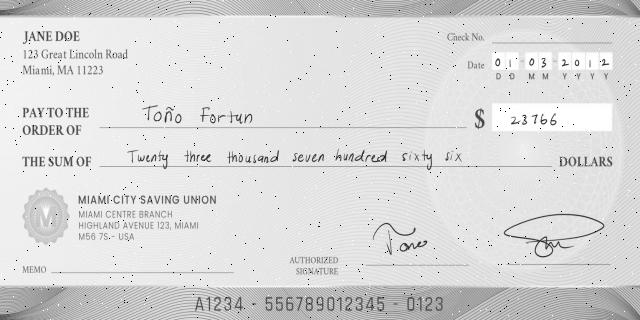 JANE DOE
123 Great Lincoln Road
Miami, MA 11223
Check No.
Date 01 03 2012
D D M M Y Y Y Y
PAY TO THE ORDER OF Toño Fortun $ 23766
THE SUM OF Twenty three thousand seven hundred sixty six DOLLARS
MIAMI CITY SAVING UNION
MIAMI CENTRE BRANCH
HIGHLAND AVENUE 123, MIAMI
M56 7S - USA
M
MEMO
AUTHORIZED SIGNATURE
A1234 - 556789012345 - 0123